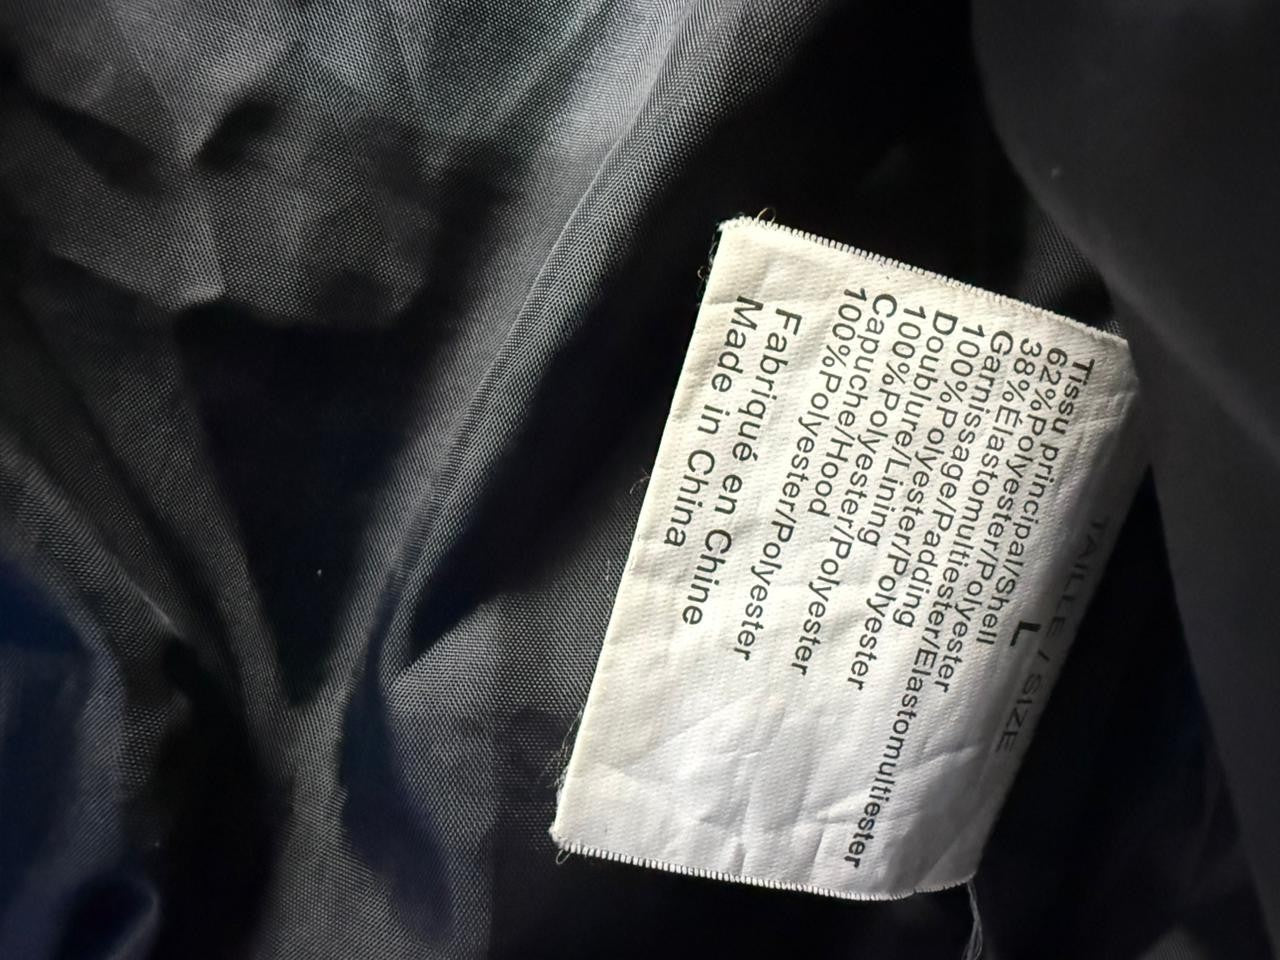 TAILLE / SIZE
L
Tissu principal/Shell
62%Polyester/Polyester
38%Élastomultiester/Elastomultiester
Garnissage/Padding
100%Polyester/Polyester
Doublure/Lining
100%Polyester/Polyester
Capuche/Hood
100%Polyester/Polyester
Fabriqué en Chine
Made in China